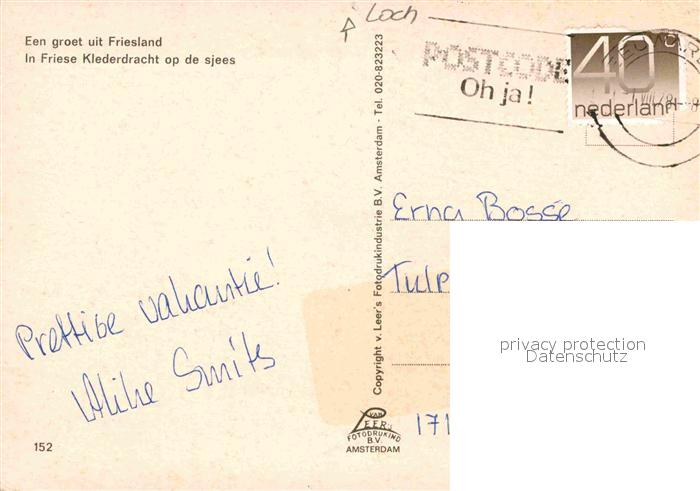 Een groet uit Friesland
In Friese Klederdracht op de sjees
Loch
POSTCODE
Oh ja!
40 c
nederland
Copyright v. Leer's Fotodrukindustrie B.V. Amsterdam - Tel. 020-823223
Erna Bosse
Tulp
171
Prettige vakantie!
Smits
VAN
LEER's
FOTODRUKIND
B.V.
AMSTERDAM
152
privacy protection
Datenschutz